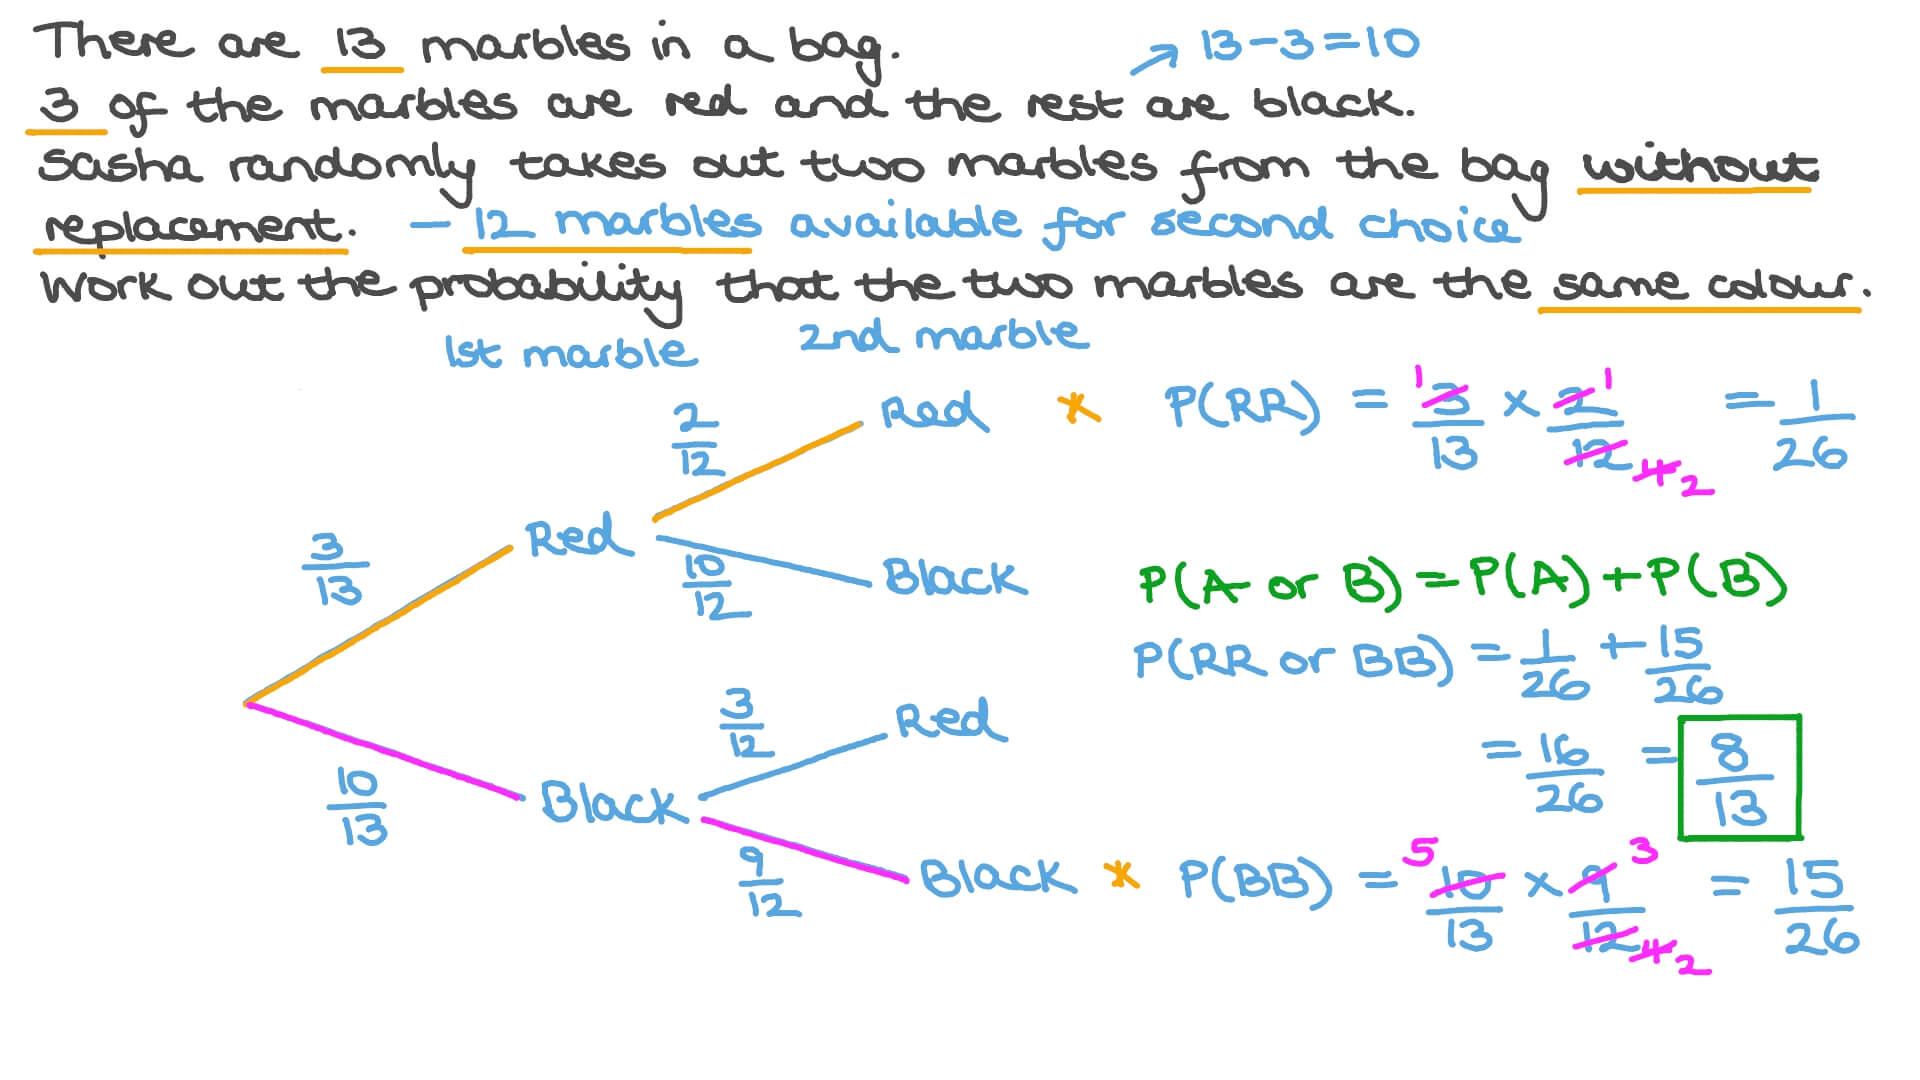 There are 13 marbles in a bag. 13-3=10
3 of the marbles are red and the rest are black.
Sasha randomly takes out two marbles from the bag without
replacement. - 12 marbles available for second choice
Work out the probability that the two marbles are the same colour.
1st marble 2nd marble
2/12 Red * P(RR) = 3/13 × 2/12 = 1/26
1 1 4 2
3/13 Red
10/12 Black
P(A or B) = P(A) + P(B)
P(RR or BB) = 1/26 + 15/26
3/12 Red
= 16/26 = 8/13
10/13 Black
9/12 Black * P(BB) = 10/13 × 9/12 = 15/26
5 3 4 2